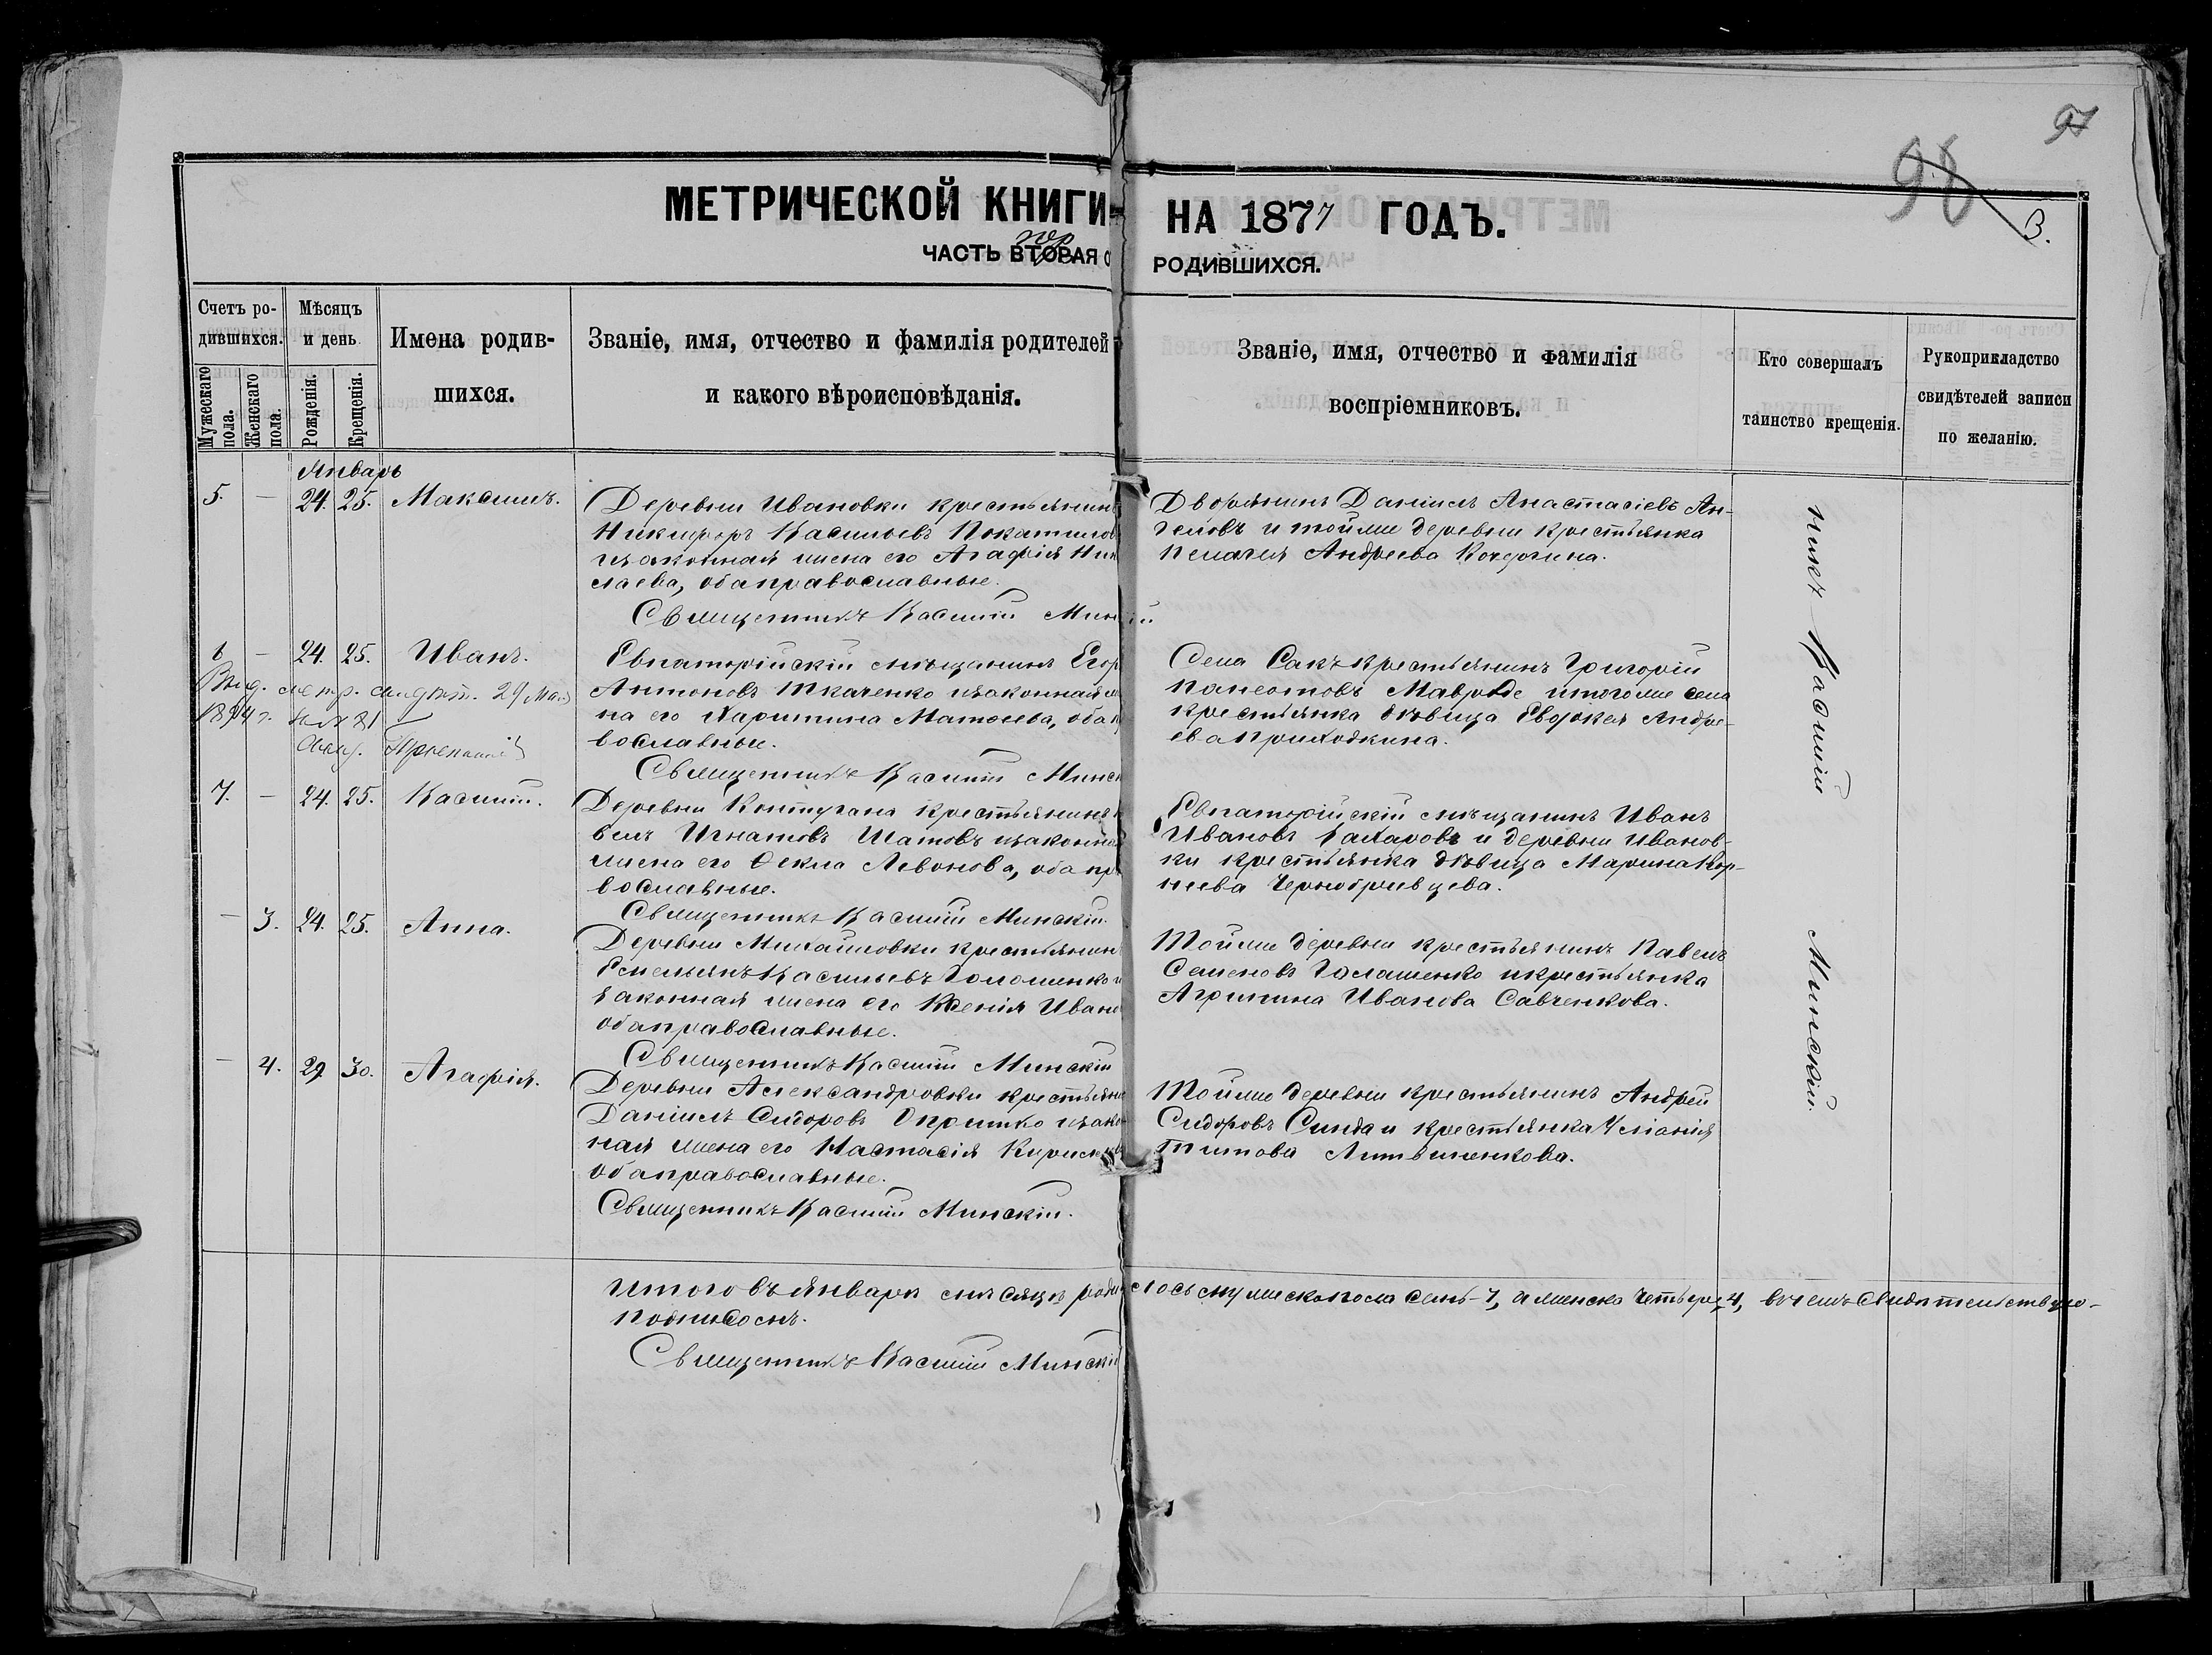 97
98
3.
МЕТРИЧЕСКОЙ КНИГИ НА 1877 ГОДЪ.
ЧАСТЬ ВТОРАЯ О РОДИВШИХСЯ.
Счетъ ро-
дившихся.
Мужескаго пола.
Женскаго пола.
Мѣсяцъ
и день
Рожденія.
Крещенія.
Имена родив-
шихся.
Званіе, имя, отчество и фамилія родителей
и какого вѣроисповѣданія.
Званіе, имя, отчество и фамилія
воспріемниковъ.
Кто совершалъ
таинство крещенія.
Рукоприкладство
свидѣтелей записи
по желанію.
Январь
5. — 24. 25. Максимъ.
Деревни Ивановки крестьянинъ
Никифоръ Васильевъ Покатилов
изаконная жена его Агафія Ник
лаева, обаправославные.
Священникъ Василій Минскій
Дворянинъ Даніилъ Анастасіевъ Ан-
геловъ и тойже деревни крестьянка
Пелагия Андреева Кочергина.
6 — 24. 25. Иванъ.
Выд. метр. свидѣт. 29 Мая
1894 г. № 81
Евпаторійскій мѣщанинъ Егор
Антоновъ Ткаченко изаконная же
на его Харитина Матвеева, оба п
вославные.
Священникъ Василій Минск
Села Сакъ крестьянинъ Григорій
Панеотовъ Мавроде итогоже села
крестьянка дѣвица Евдокея Андре-
ева Приходкина.
7. — 24. 25. Василій.
Деревни Контугана крестьянинъ
велъ Игнатовъ Шатовъ изаконна
жена его Ѳекла Левонова, оба пр
вославные.
Священникъ Василій Минскій.
Евпаторійскій мѣщанинъ Иванъ
Ивановъ Захаровъ и деревни Иванов-
ки крестьянка дѣвица Марина Кор-
неева Чернобривцева.
— 3. 24. 25. Анна.
Деревни Михайловки крестьянин
Емельянъ Васильевъ Голошенко и
законная жена его Ксенія Ивано
обаправославные.
Священникъ Василій Минскій
Тойже деревни крестьянинъ Павелъ
Семеновъ Голашенко икрестьянка
Агрипина Иванова Савченкова.
— 4. 29. 30. Агафія.
Деревни Александровки крестьяни
Даніилъ Сидоровъ Опришко изако
ная жена его Настасія Кирилов
обаправославные.
Священникъ Василій Минскій.
Тойже деревни крестьянинъ Андрей
Сидоровъ Синда и крестьянка Уліанія
Титова Литвиненкова.
никъ Василій Минскій.
Итого въ Январѣ мѣсяцѣ родилось мужеска пола семь-7, а женска четыре-4, вчемъ свидѣтельствую-
подписомъ.
Священникъ Василій Минскій